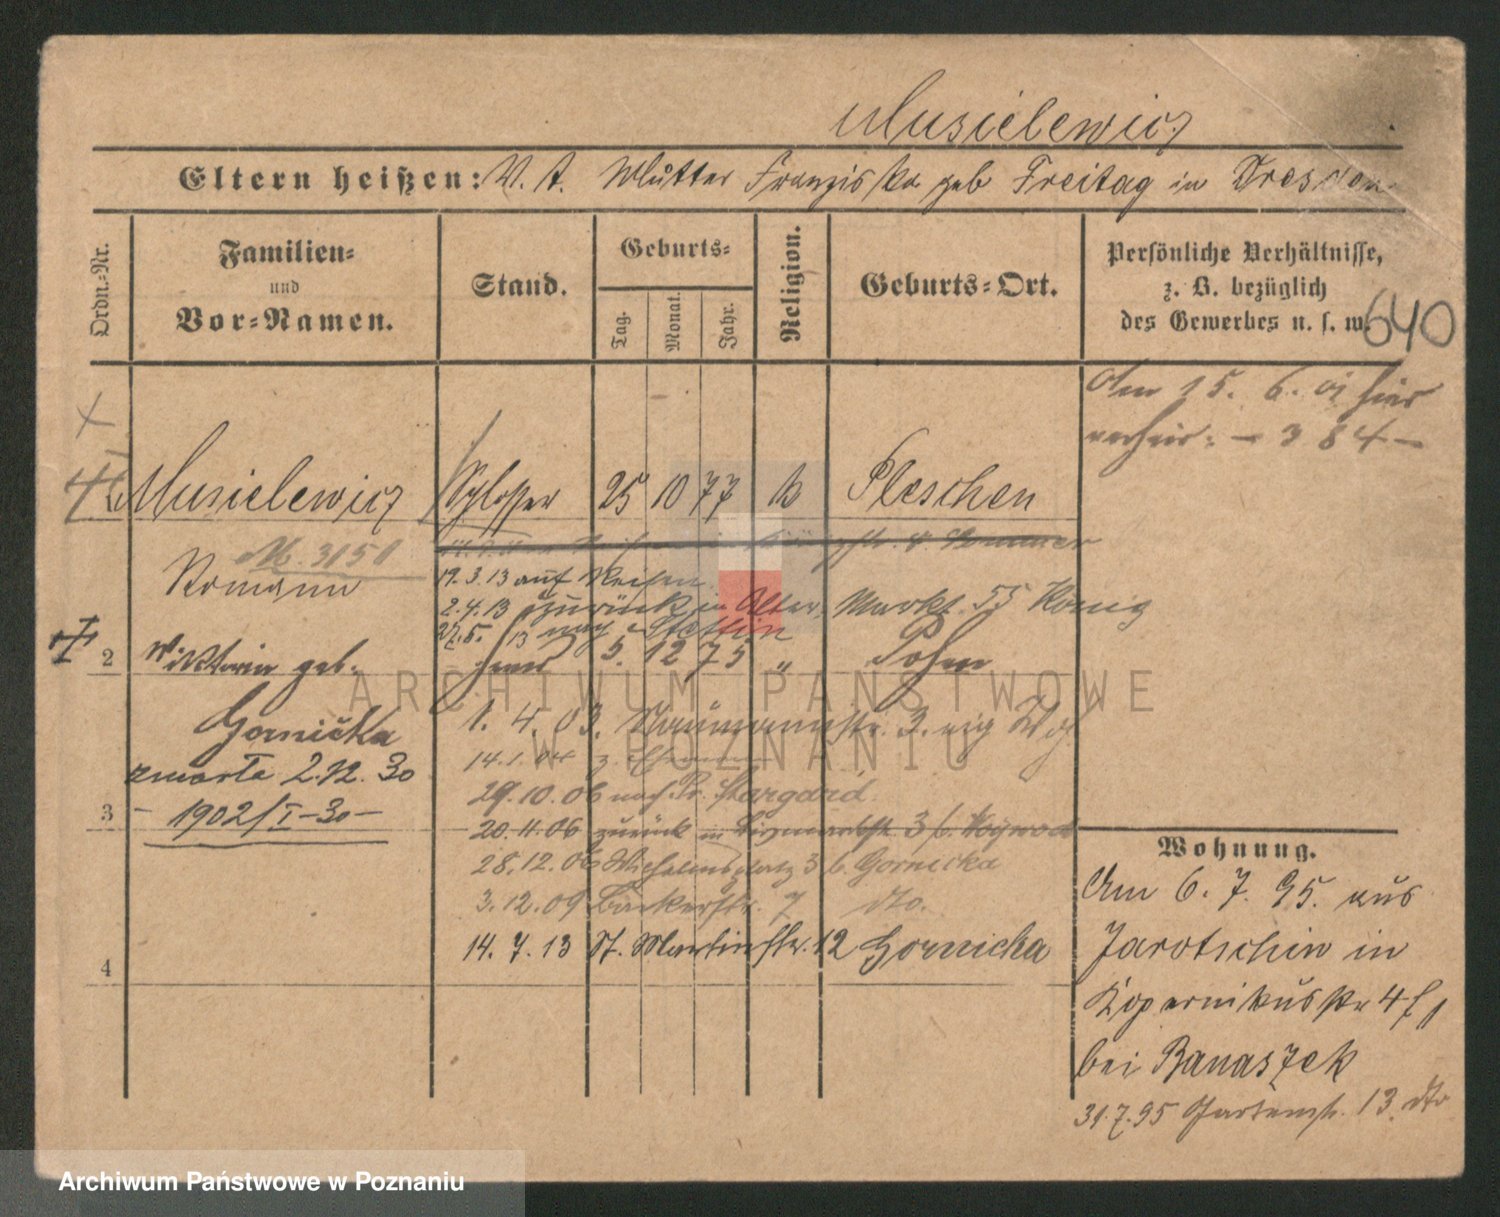 Musielewicz
Eltern heißen: V. t. Mutter Franziska geb Freitag in Dresden
Ordn.-Nr.
Familien-
und
Vor-Namen.
Stand.
Geburts-
Tag.
Monat.
Jahr.
Religion.
Geburts-Ort.
Persönliche Verhältnisse,
z. B. bezüglich
des Gewerbes u. s. w.
640
Am 15. 6. 01 hier
verheir: - 384 -
Musielewicz Schlosser 25 10 77 k Pleschen
M. 3151
Romann
19.3.13 auf Reisen
2.4.13 zurück in Alter Markt 55 König
27.5.13 nach Stettin
2 Wiktoria geb. 5. 12 75 "
Gornička
zmarła 2.12.30
- 1902/I-30 -
1. 4. 03. Naumannstr. 3. eig Wg
14.1.04
29.10.06 nach Pr. Stargard
3
20.11.06 zurück in Bismarckstr 3 b. Woywod
28.12.06 Wilhelmsplatz 3 b. Gornicka
3.12.09 Bäckerstr. 7 dto.
14. 7. 13 St. Martinstr. 12 Gornicka
4
Wohnung.
Am 6. 7. 95. aus
Jarotschin in
Kopernikusstr 4
bei Banaszek
31.7.95 Gartenstr. 13. dto
ARCHIWUM PAŃSTWOWE
W POZNANIU
Archiwum Państwowe w Poznaniu